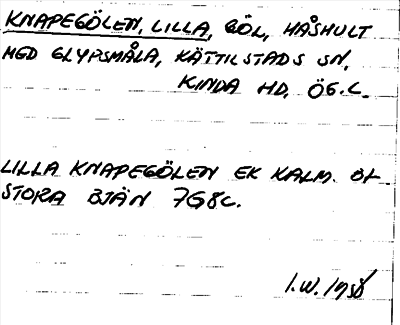 KNAPEGÖLEN, LILLA, GÖL, HÅSHULT
MED GLYPSMÅLA, KÄTTILSTADS SN,
KINDA HD, ÖG.L.
LILLA KNAPEGÖLEN EK KALM. BL
STORA BJÄN 7G8c.
I.W.